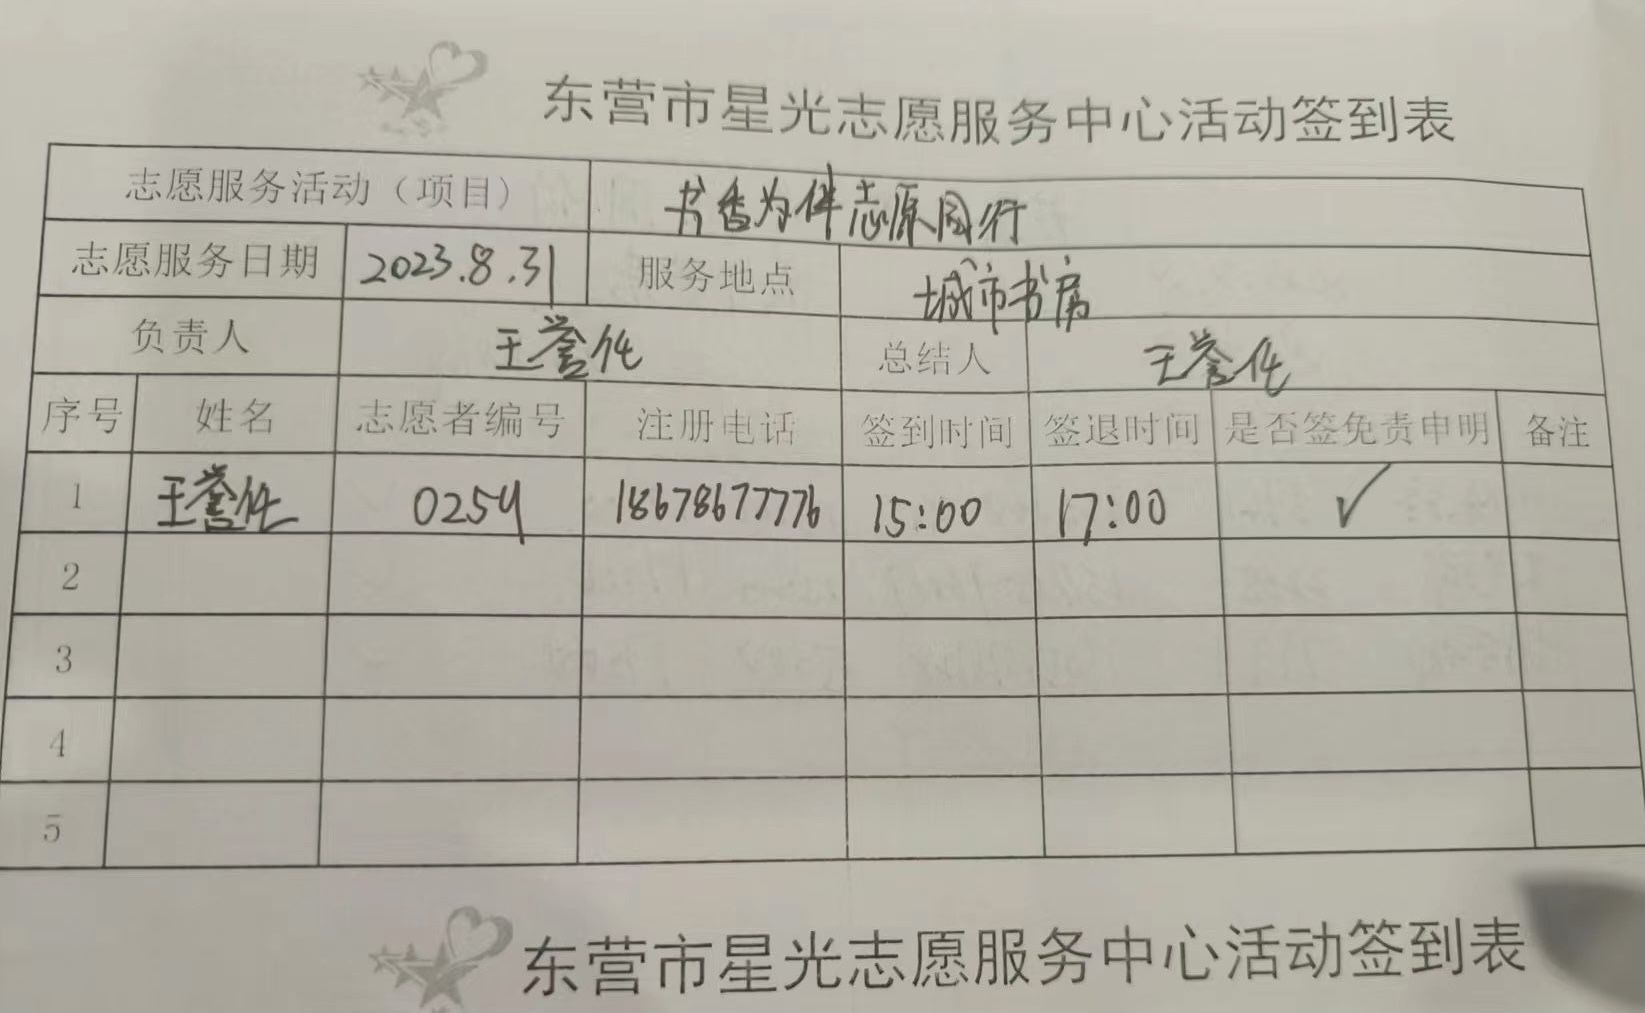 东营市星光志愿服务中心活动签到表
志愿服务活动（项目） 书香为伴志愿同行
志愿服务日期 2023.8.31 服务地点 城市书房
负责人 王誉任 总结人 王誉任
序号 姓名 志愿者编号 注册电话 签到时间 签退时间 是否签免责申明 备注
1 王誉任 0254 18678677776 15:00 17:00 ✓
2
3
4
5
东营市星光志愿服务中心活动签到表